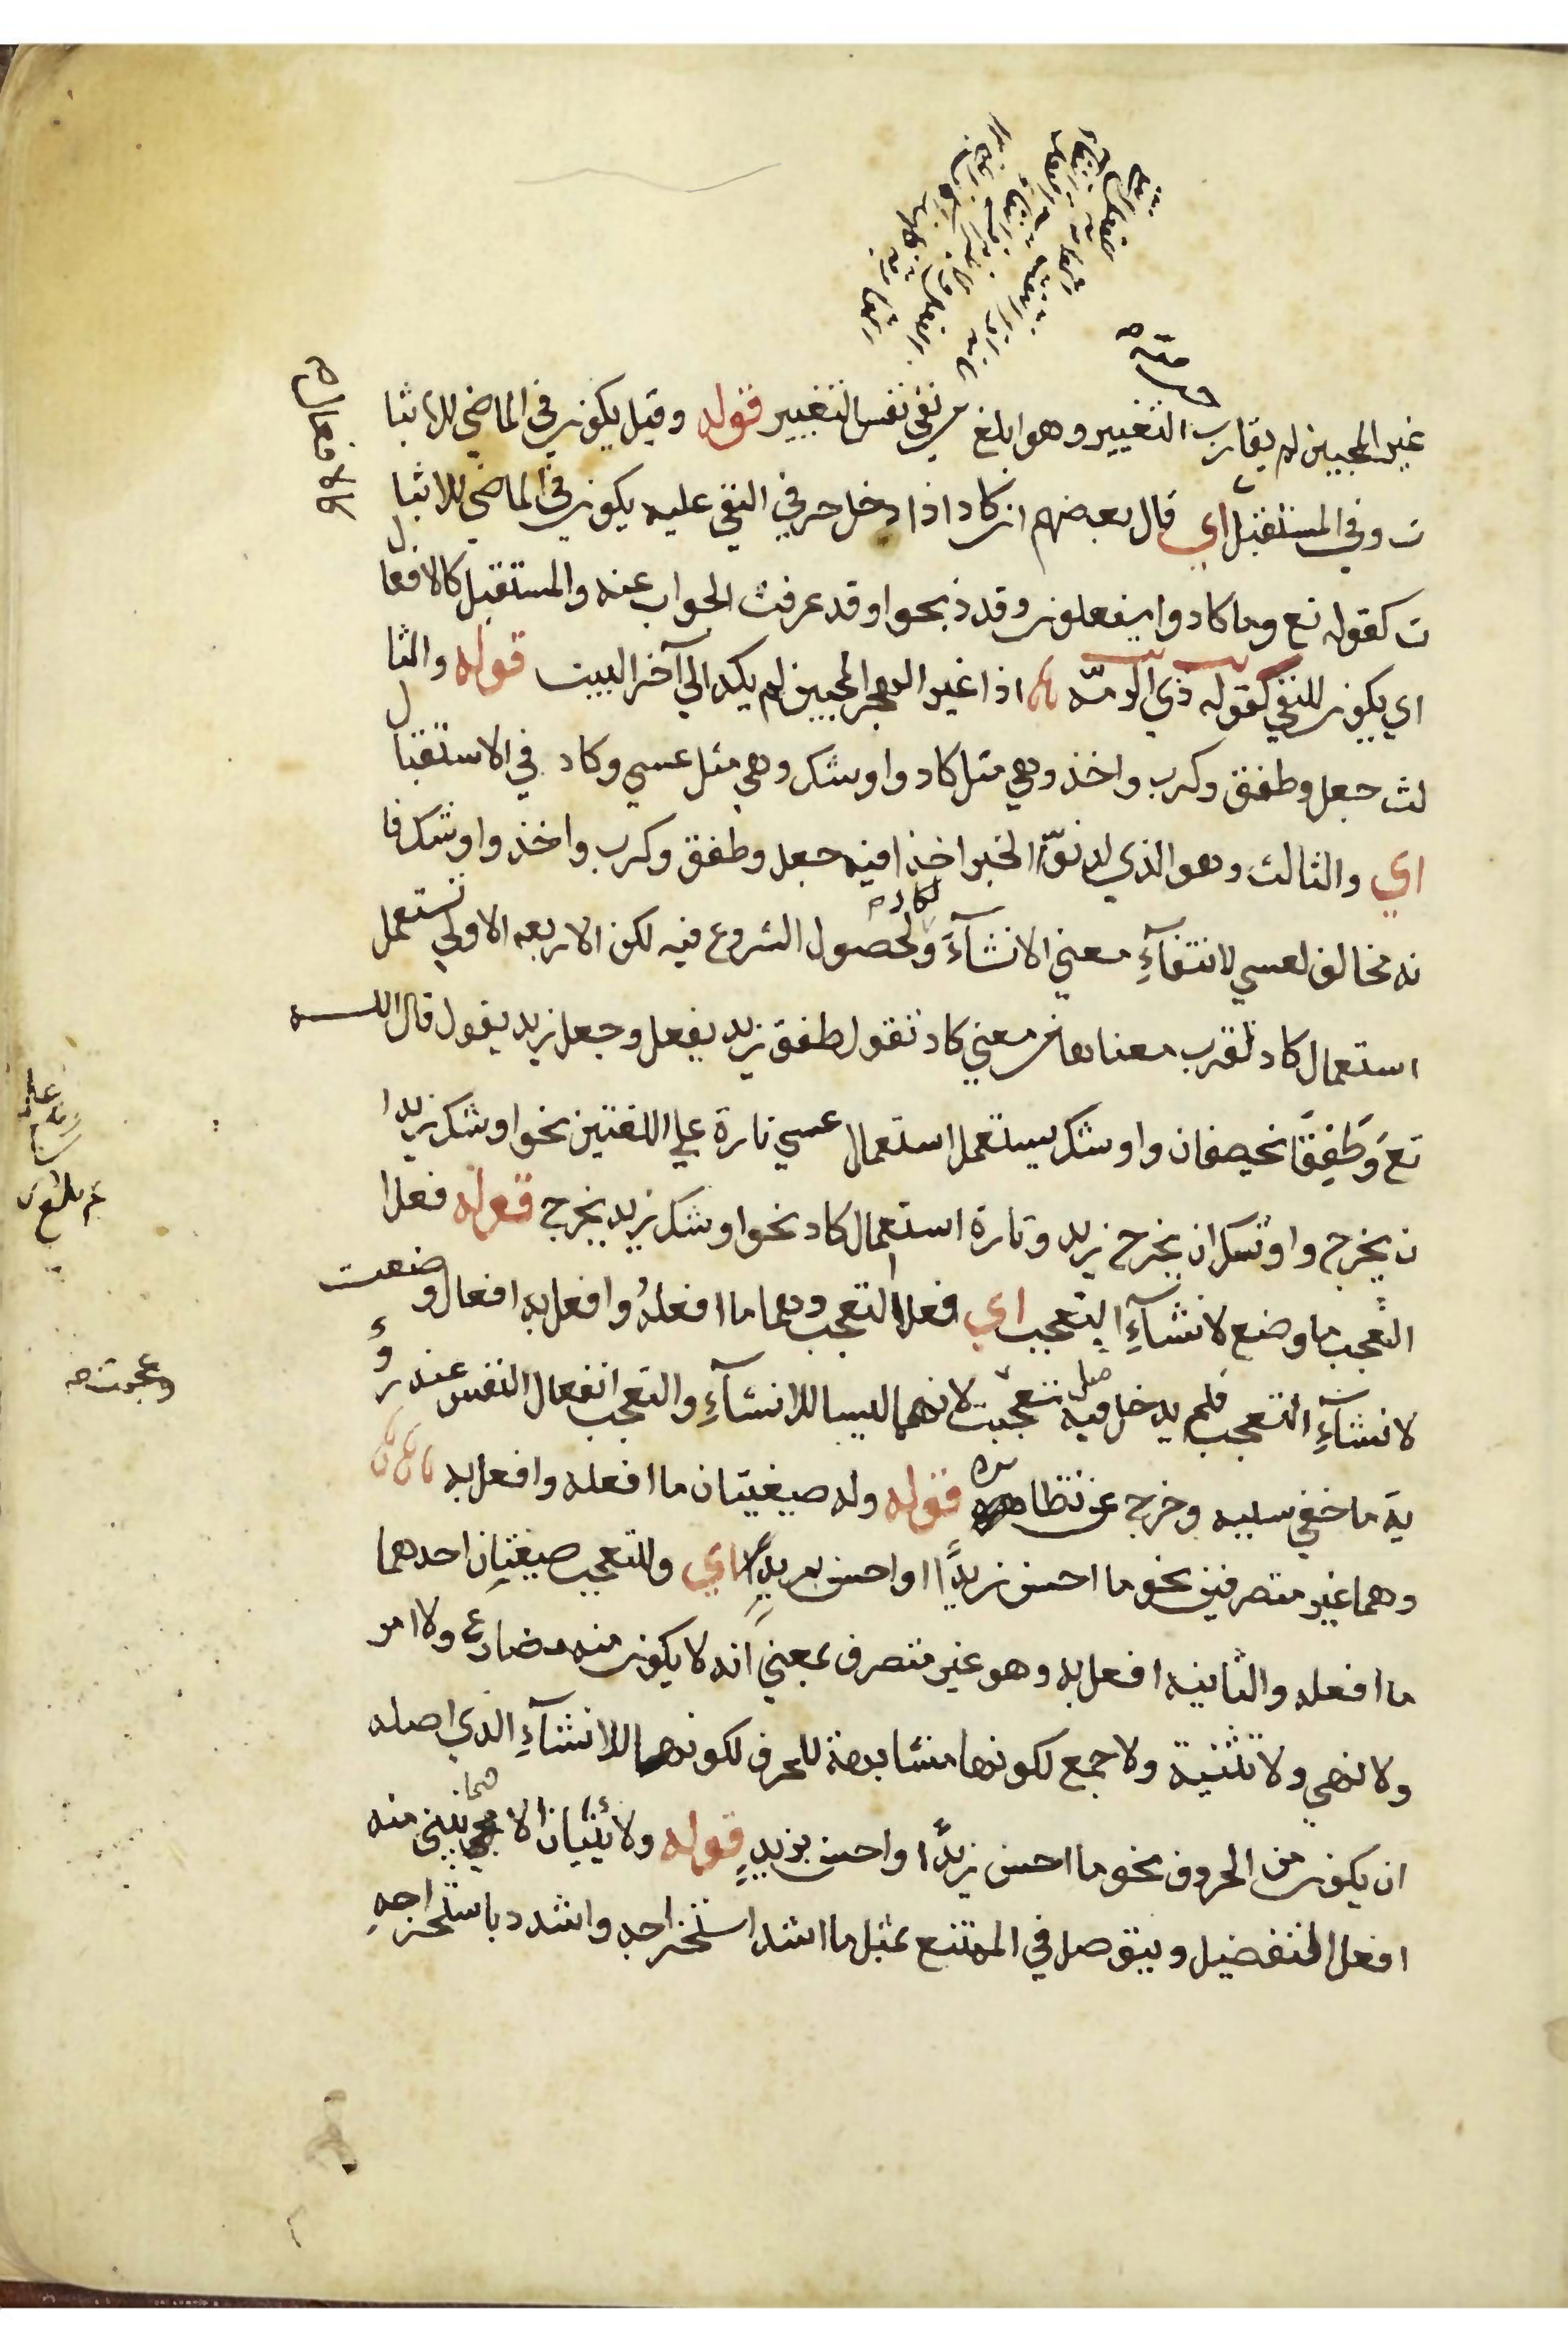 غير المحبين لم يقارب التغيير وهو ابلغ من نفي نفس التغيير قوله وقيل يكون في الماضي للاثبا
ت وفي المستقبل اي قال بعضهم ان كاد اذا دخل حرف النفي عليه يكون في الماضي للاثبا
ت كقوله تع وما كادوا يفعلون وقد ذبحوا وقد عرفت الجواب عنه والمستقبل كالافعال
اي يكون للنفي كقوله ذي الرمّة اذا غير الهجر المحبين لم يكد الي آخر البيت قوله والثا
لث جعل وطفق وكرب واخذ وهي مثل كاد واوشك وهي مثل عسي وكاد في الاستقبال
اي والثالث وهو الذي لدنوّ الخبر اخذا فيه جعل وطفق وكرب واخذ واوشك فا
نه مخالف لعسي لانتفآءِ معني الانشآءَ ولحصول الشروع فيه لكن الاربعه الاولي تستعمل
استعمال كاد لقرب معناها من معني كاد تقول طفق زيد يفعل وجعل زيد يقول قال الله
تع وَطَفِقَا يخصفان واوشك يستعمل استعمال عسي تارة علي اللغتين نحو اوشك زيد ا
ن يخرج واوشك ان يخرج زيد وتارة استعمال كاد نحو اوشك زيد يخرج قوله فعلا
التعجب ما وضع لانشآءِ التعجب اي فعلا التعجب وهما ما افعلهُ وافعل به افعال وضعت
لانشآءِ التعجب فلم يدخل فيه مثل تعجبت لانهما ليسا للانشآءِ والتعجب انفعال النفس عند رؤ
ية ما خفي سببه وخرج عن نظائره قوله وله صيغتان ما افعله وافعل به
وهما غير متصرفين نحو ما احسن زيدًا واحسن بزيدٍ اي وللتعجب صيغتان احدهما
ما افعله والثانيه افعل به وهو غير متصرف بمعني انه لا يكون منه مضارع ولا امر
ولا نهي ولا تثنية ولا جمع لكونها مشابهة للحرف لكونهما للانشآءِ الذي اصله
ان يكون من الحروف نحو ما احسن زيدًا واحسن بزيدٍ قوله ولا يبنيان الا مما يبني منه
افعل التفضيل ويتوصل في الممتنع بمثل ما اشد استخراجه واشدد باستخراجهِ
وعجبت صه